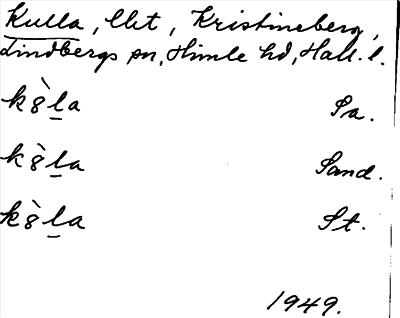 Kulla, lht, Kristineberg,
Lindbergs sn, Himle hd, Hall. l.
k8̀l̲a Sa.
k8̀l̲a Sand.
k8̀l̲a St.
1949.